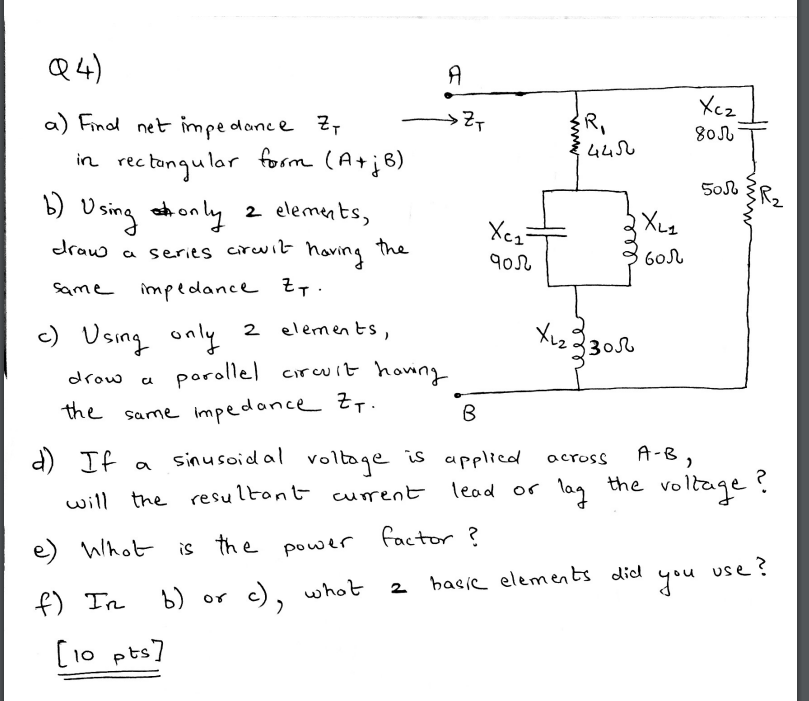 Q4)
a) Find net impedance Z_T
in rectangular form (A+jB)
b) Using only 2 elements,
draw a series circuit having the
same impedance Z_T.
c) Using only 2 elements,
draw a parallel circuit having
the same impedance Z_T.
A
→Z_T
R₁
44Ω
X_C2
80Ω
50Ω R₂
X_C1
90Ω
X_L1
60Ω
X_L2 30Ω
B
d) If a sinusoidal voltage is applied across A-B,
will the resultant current lead or lag the voltage?
e) What is the power factor?
f) In b) or c), what 2 basic elements did you use?
[10 pts]